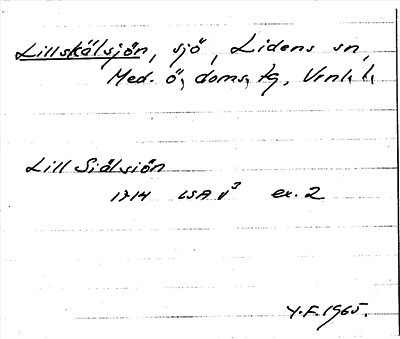 Lillskälsjön, sjö, Lidens sn,
Med. ö, doms. tg, Vrnl. l.
Lill Siälsiön
1714 LSA V³ ex. 2
Y.F. 1965.